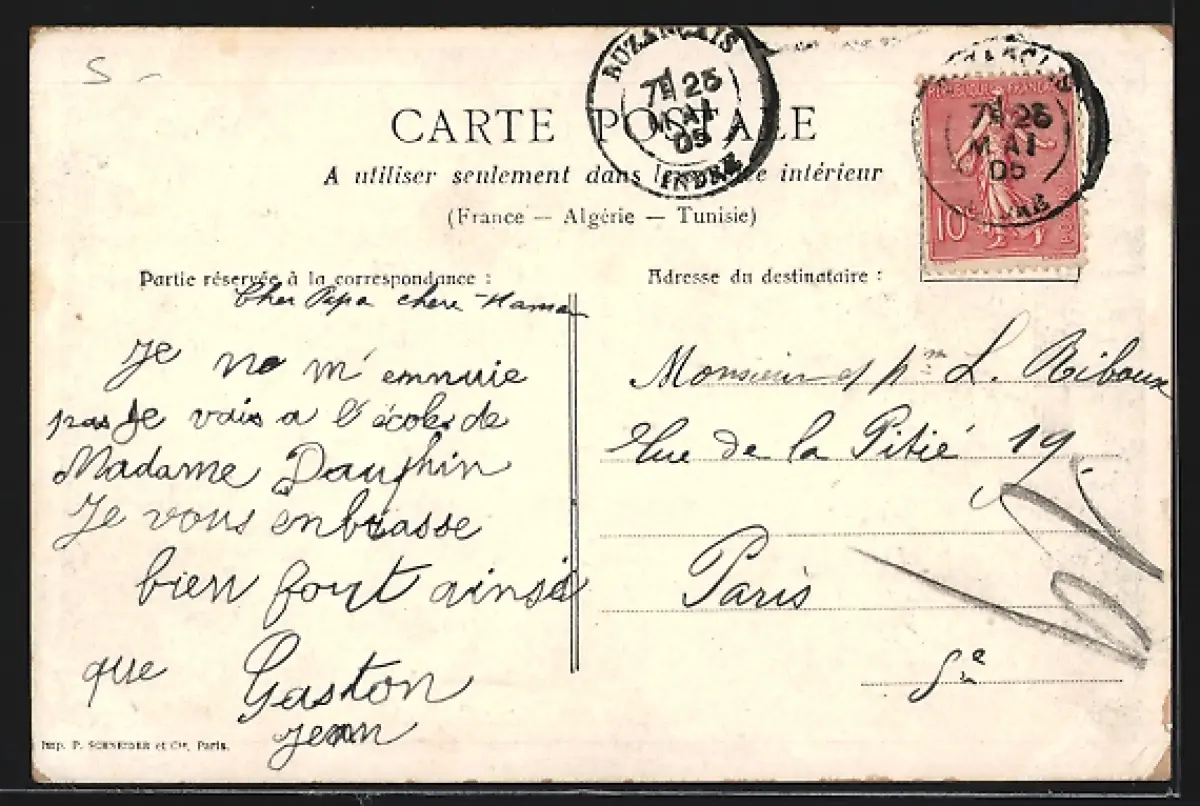 S -
BUZANÇAIS
7E 25
MAI
05
INDRE
RÉPUBLIQUE FRANÇAISE
7E 25
MAI
05
10
CARTE POSTALE
A utiliser seulement dans le service intérieur
(France — Algérie — Tunisie)
Partie réservée à la correspondance :
Adresse du destinataire :
Cher Papa chere Mama
Je ne m'emnuie
pas Je vais a l'école de
Madame Dauphin
Je vous enbrasse
bien fort ainsi
que Gaston
jean
Monsieur et Mme L. Riboux
Rue de la Pitié 19.
Paris
Se
Imp. P. SCHNEIDER et Cie, Paris.